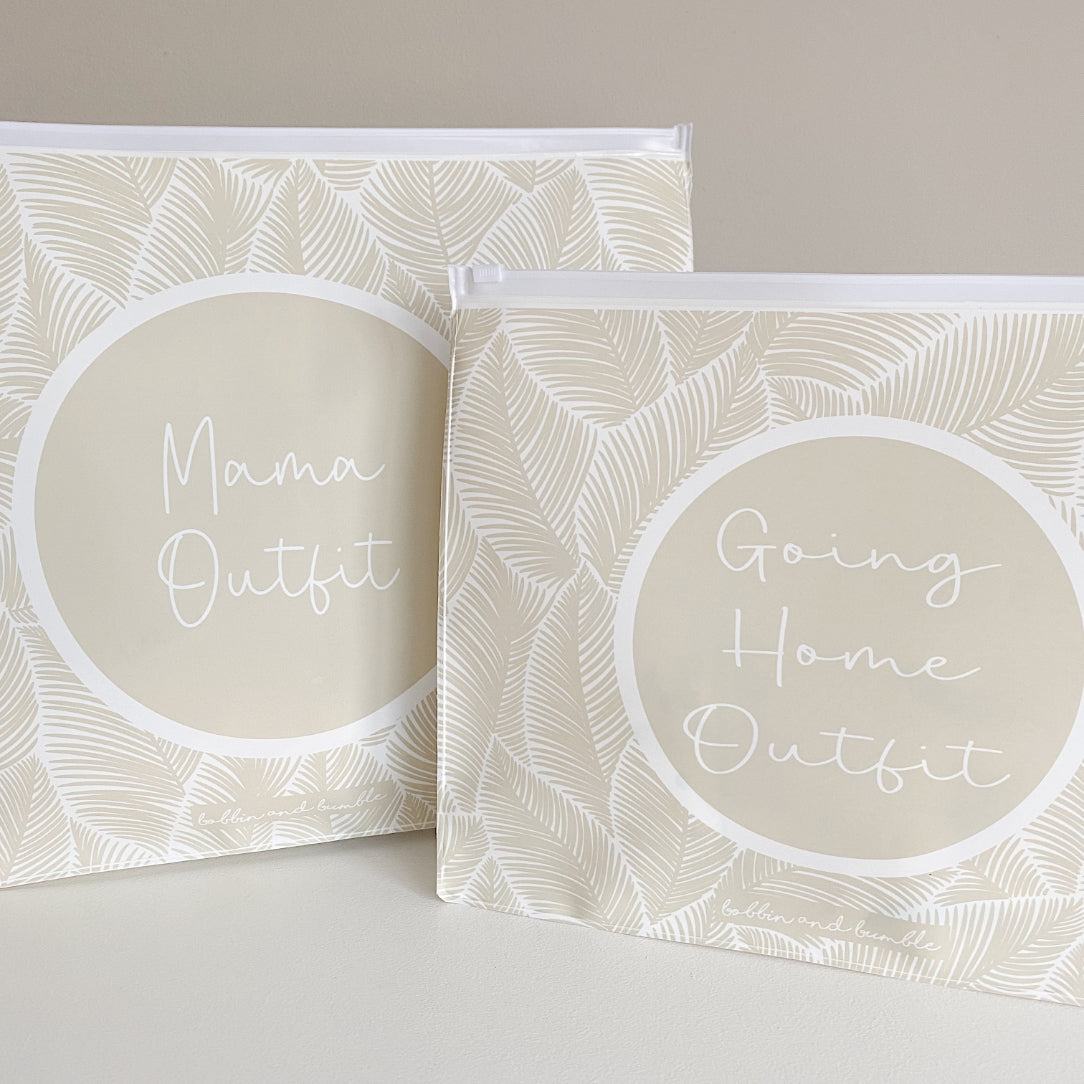 Mama
Outfit
bobbin and bumble
Going
Home
Outfit
bobbin and bumble